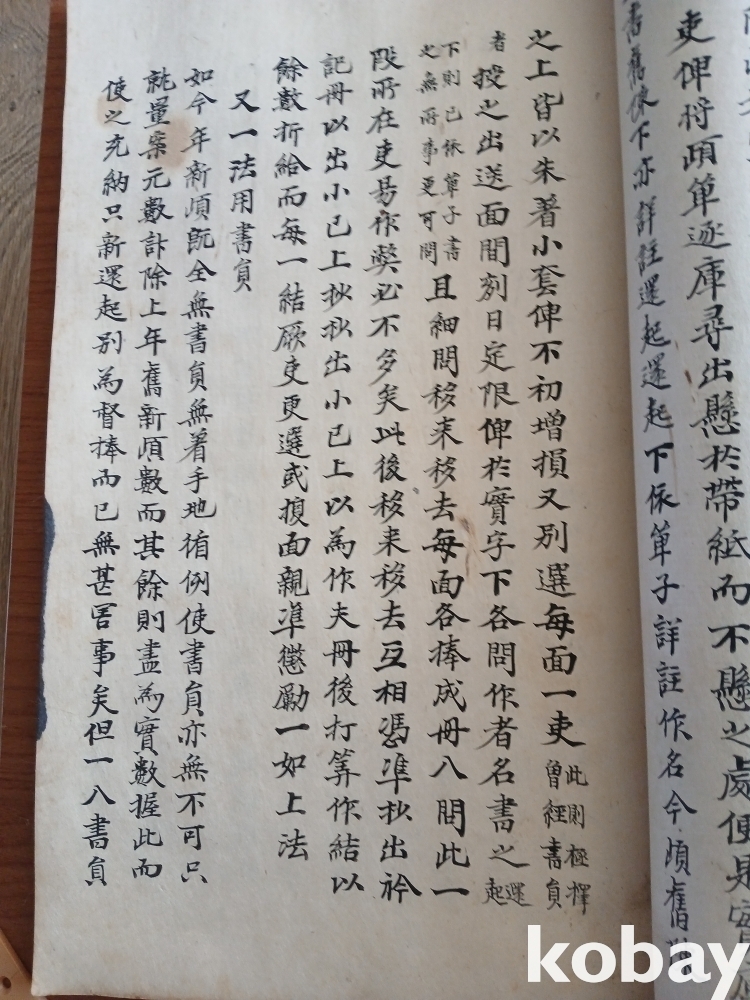 吏俾將頉單逐庫尋出懸於帶紙而不懸之處便是
書舊懷下亦詳註還起還起下依單子詳註作名今頉舊
之上皆以朱著小套俾不初增損又別選每面一吏此則極擇曾經書員
者授之出送面間刻日定限俾於實字下各問作者名書之還起
下則已依單子書之無所事更可問且細問移來移去每面各捧成冊入間此一
段所在吏易作獘必不多矣此後移來移去互相憑準抄出衿
記冊以出小已上抄抄出小已上以為作夫冊後打筭作結以
餘數折給而每一結厥吏更選或換面親準懲勵一如上法
又一法用書員
如今年新頉旣全無書員無著手地循例使書員亦無不可只
就量案元數計除上年舊新頉數而其餘則盡為實數握此而
使之充納只新還起別為督捧而已無甚害事矣但一入書員
kobay